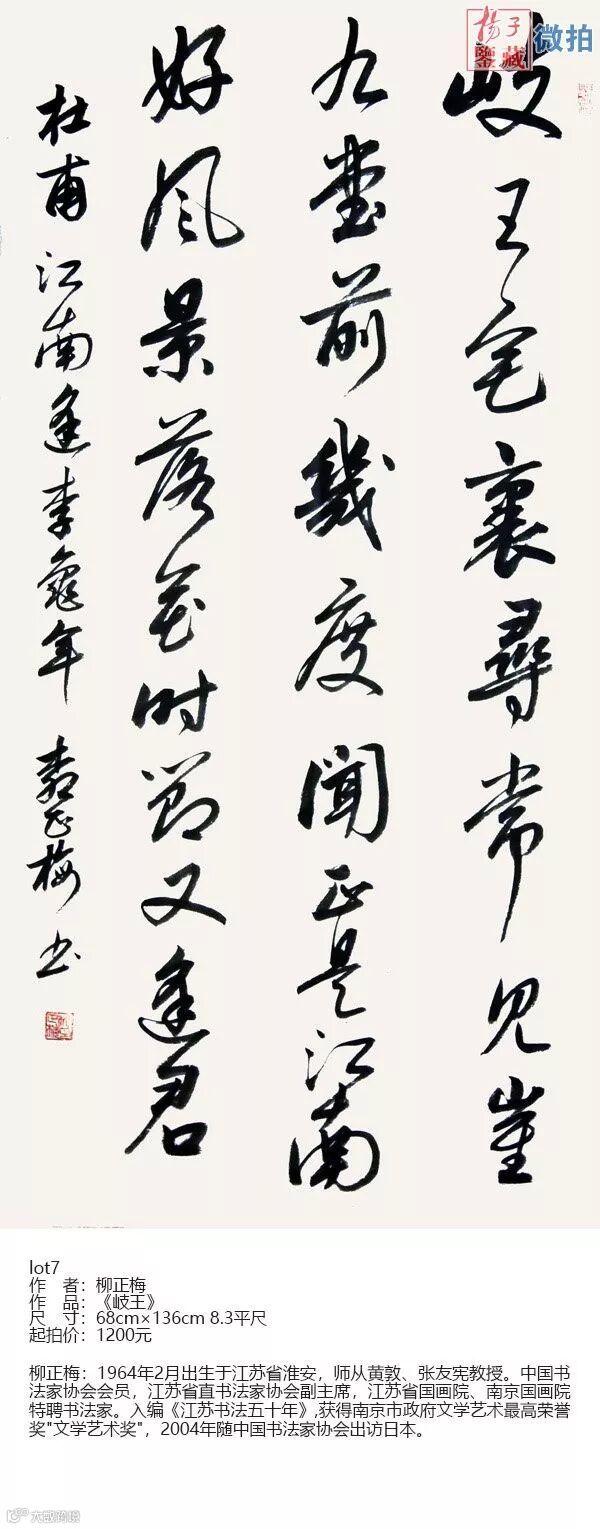 楊子
鑒藏
微拍
岐王宅裏尋常見崔
九堂前幾度聞正是江南
好風景落花時節又逢君
杜甫江南逢李龜年 柳正梅书
lot7
作　者：柳正梅
作　品：《岐王》
尺　寸：68cm×136cm 8.3平尺
起拍价：1200元
柳正梅：1964年2月出生于江苏省淮安，师从黄敦、张友宪教授。中国书
法家协会会员，江苏省直书法家协会副主席，江苏省国画院、南京国画院
特聘书法家。入编《江苏书法五十年》,获得南京市政府文学艺术最高荣誉
奖"文学艺术奖"，2004年随中国书法家协会出访日本。
大数跨境